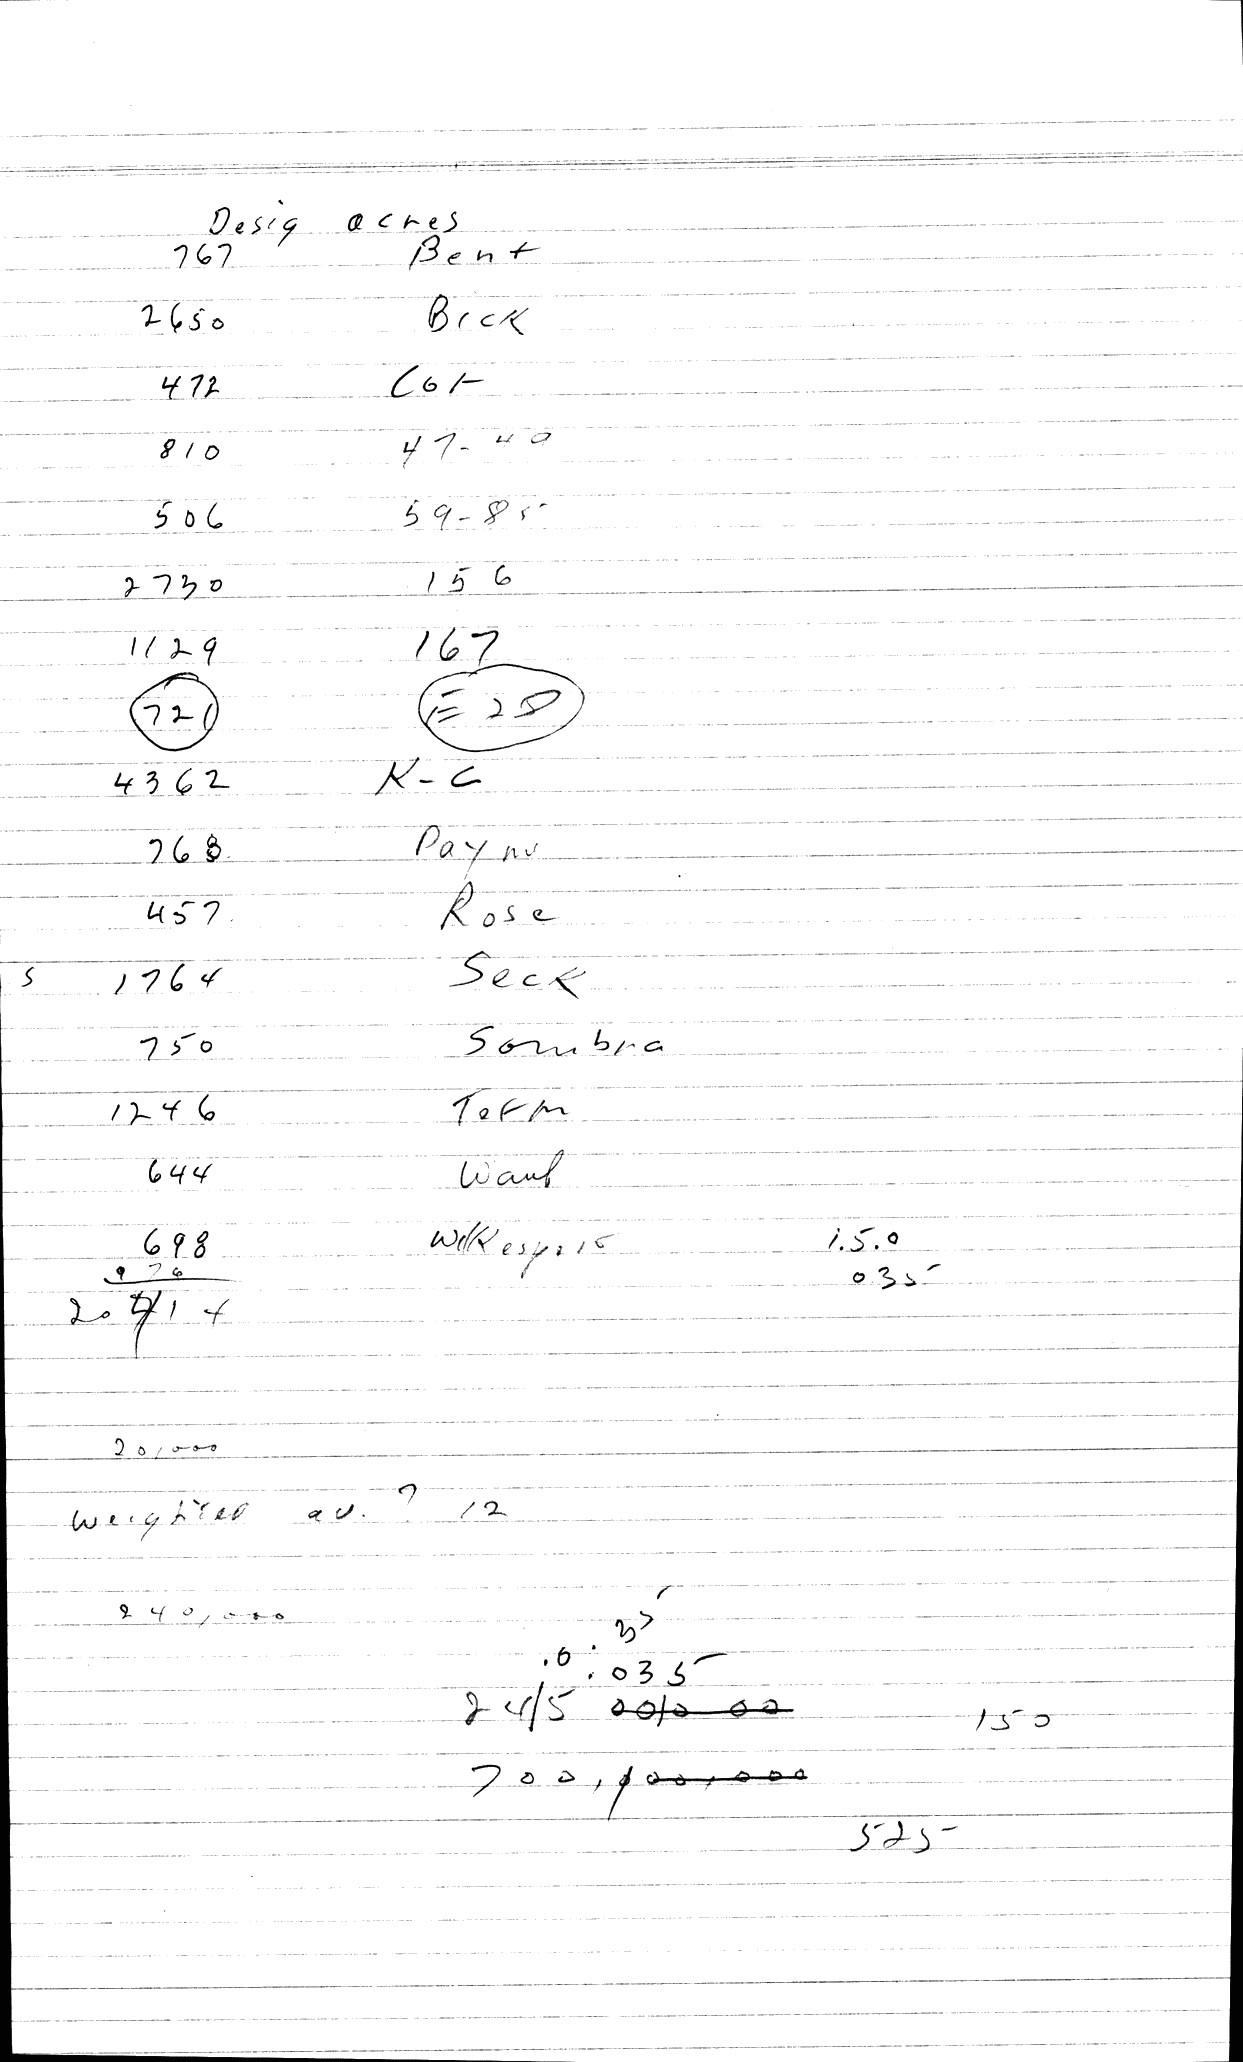 Desig acres
767 Bent
2650 Bick
472 Cot
810 47-49
506 59-85
2730 156
1129 167
721 E 28
4362 K-C
768 Payne
457 Rose
S 1764 Seck
750 Sombra
1246 Term
644 Wauf
698 1.5.0
976 035
20414
20,000
Weighted av. ? 12
240,000
35
.0.035
24/5 000 00 150
700,000,000
525